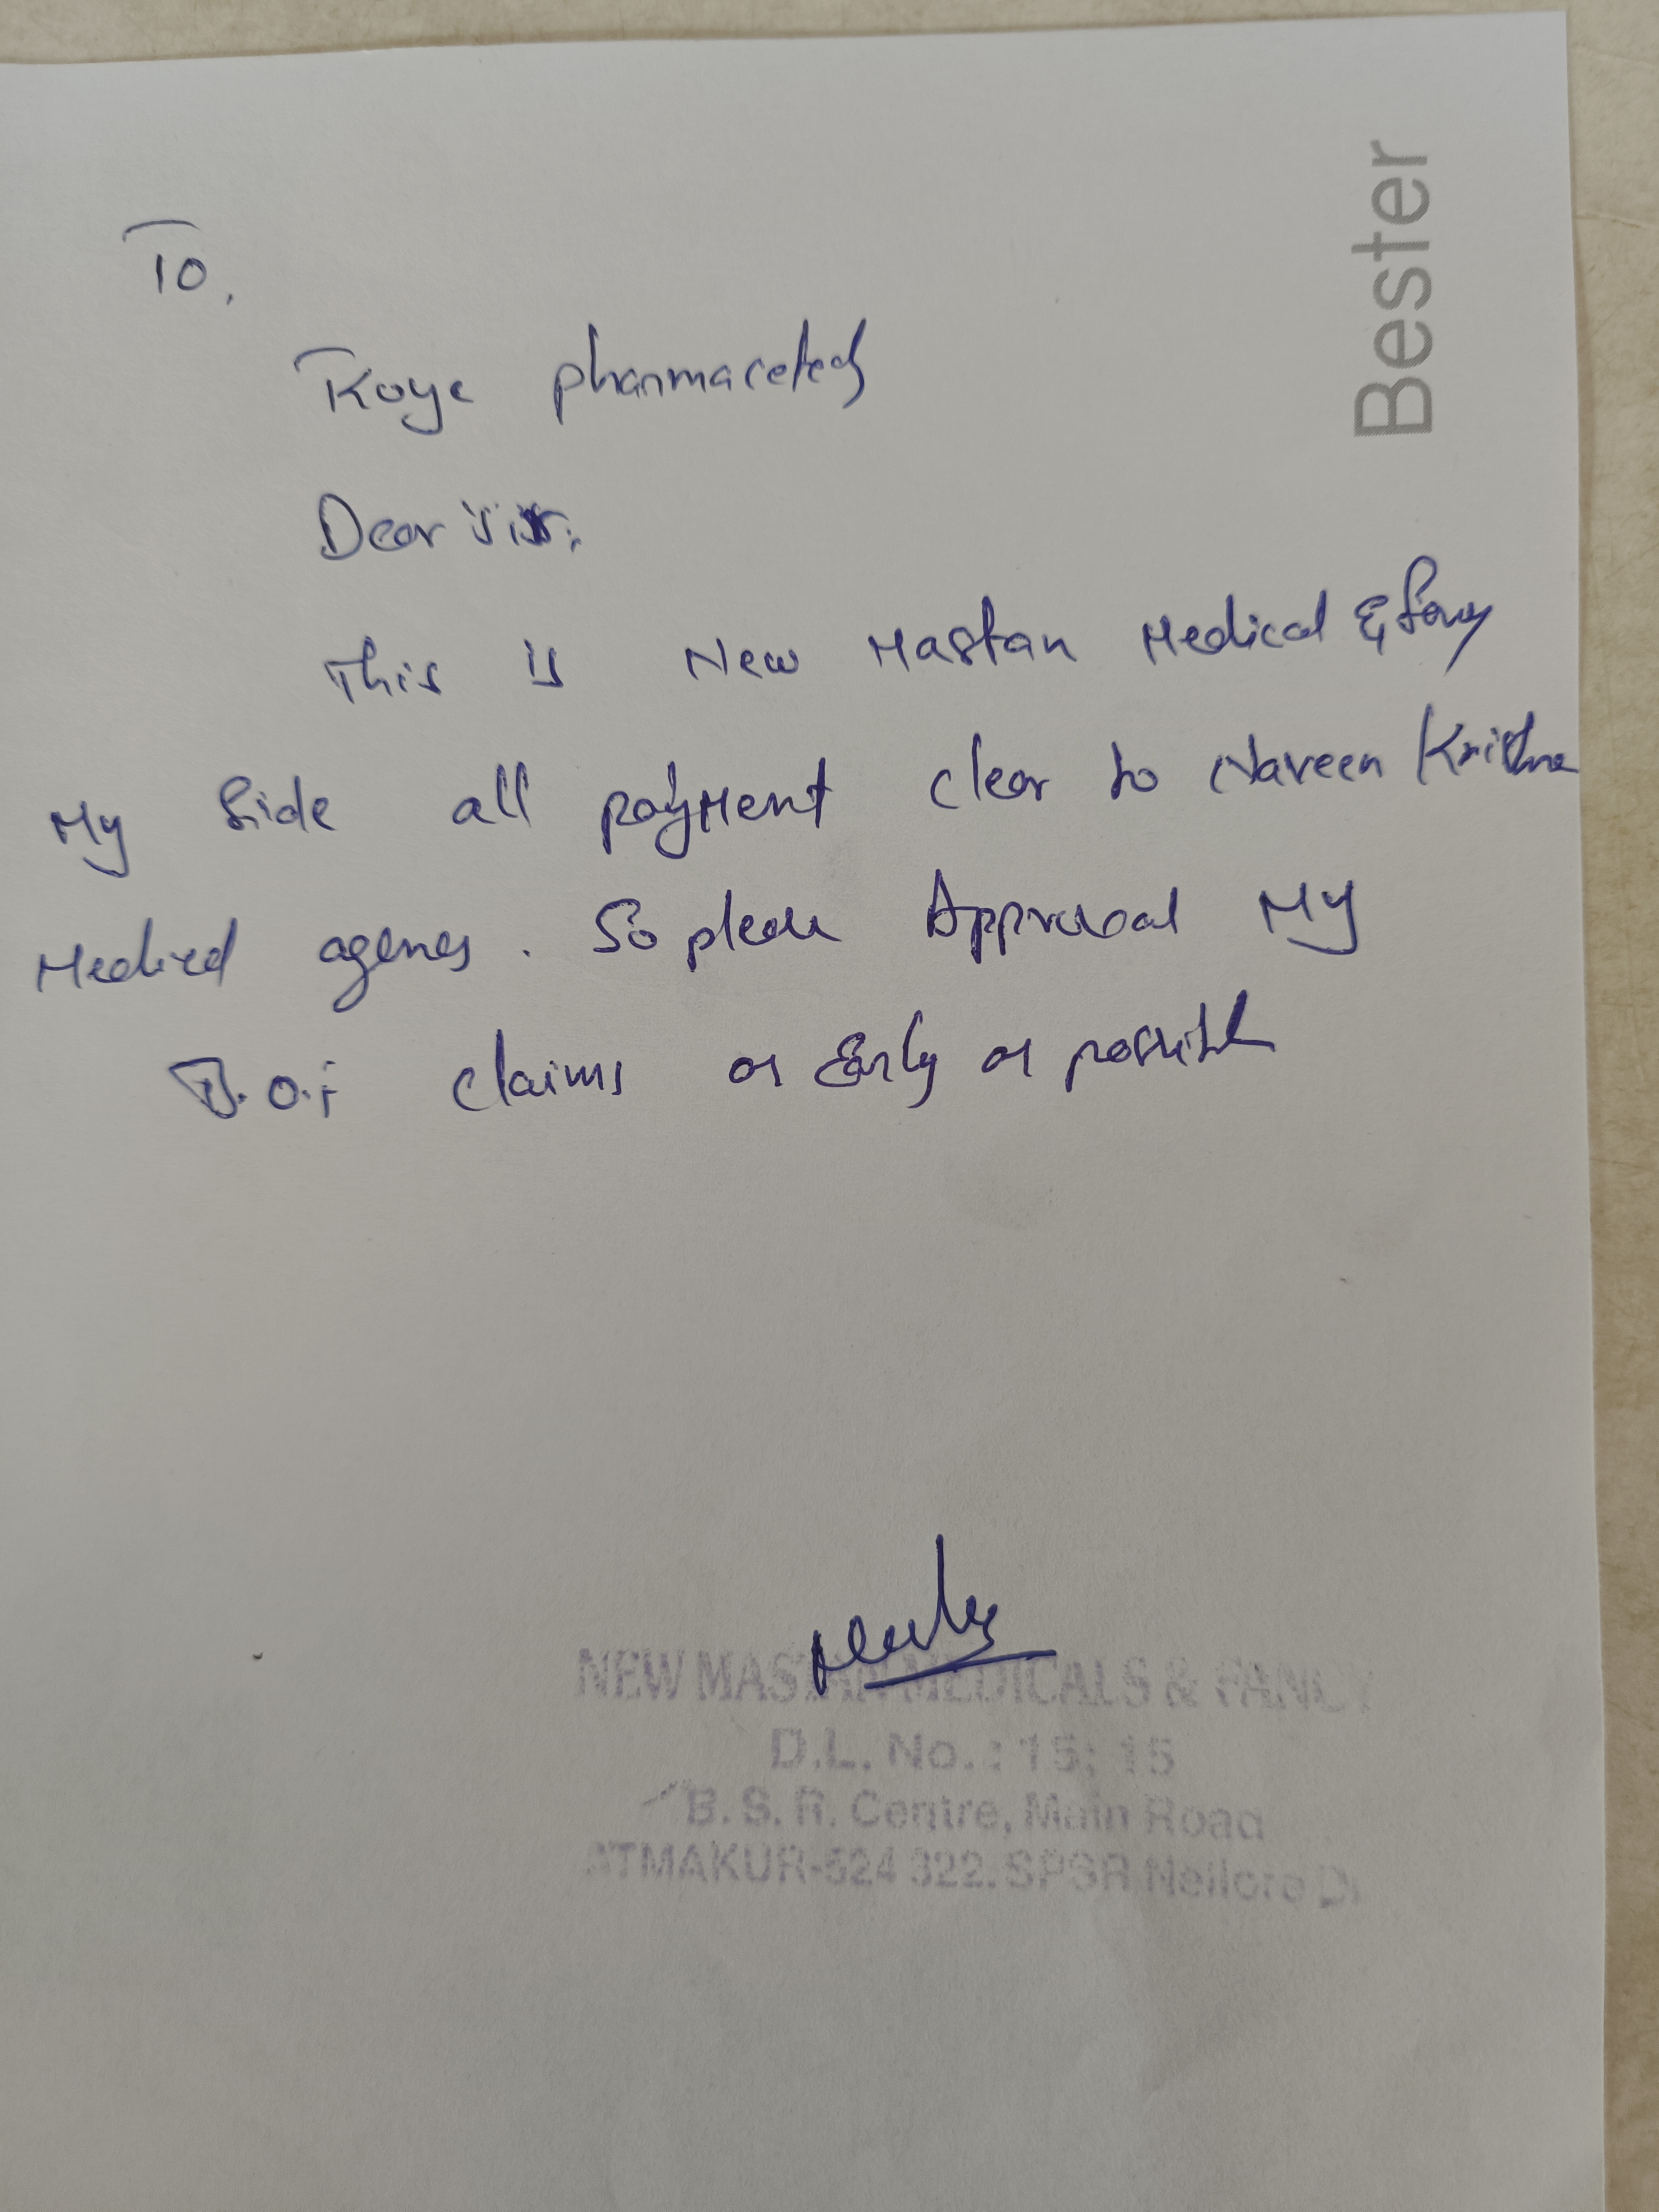 Bester
To,
Koye pharmaceteds
Dear sir,
This is New Mastan Medical & Fancy
My Side all payment clear to Naveen Krishna
Medical agencs. So please Approval My
B.O.i claims as Early as possible
NEW MASTAN MEDICALS & FANCY
D.L. No.: 15; 15
B. S. R. Centre, Main Road
ATMAKUR-524 322. SPSR Nellore Dt